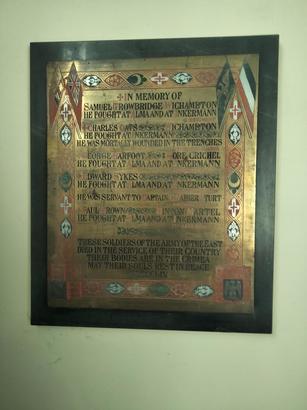 IN MEMORY OF
SAMUEL TROWBRIDGE WICHAMPTON
HE FOUGHT AT ALMA AND INKERMANN
CHARLES OATS WICHAMPTON
HE FOUGHT AT INKERMANN
HE WAS MORTALLY WOUNDED IN THE TRENCHES
GEORGE BARFOOT MORE CRICHEL
HE FOUGHT AT ALMA AND INKERMANN
EDWARD SYKES
HE FOUGHT AT ALMA AND INKERMANN
HE WAS SERVANT TO CAPTAIN
PAUL BROWN HINTON MARTEL
HE FOUGHT AT ALMA AND INKERMANN
THESE SOLDIERS OF THE ARMY OF THE EAST
DIED IN THE SERVICE OF THEIR COUNTRY
THEIR BODIES ARE IN THE CRIMEA
MAY THEIR SOULS REST IN PEACE